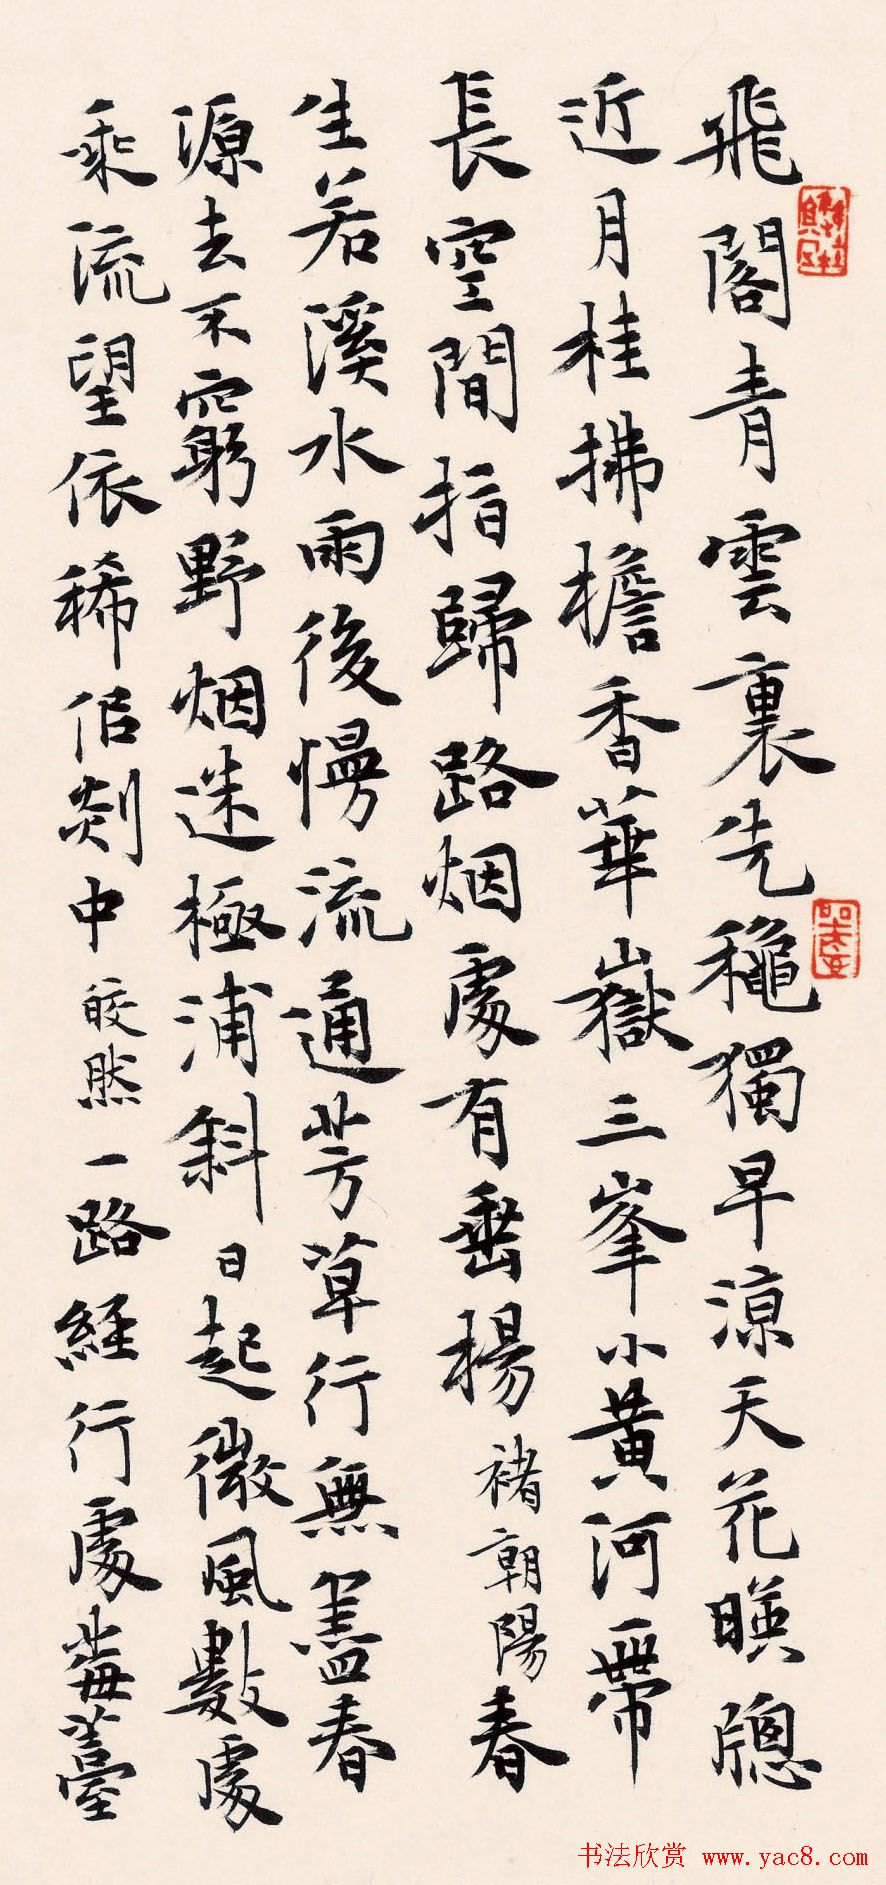 飛閣青雲裏先穐獨早涼天花暎牕
近月桂拂檐香華嶽三峯小黃河帶
長空間指歸路烟處有垂楊褚朝陽春
生若溪水雨後慢流通芳草行無盡春
源去不窮野烟迷極浦斜日起微風數處
乘流望依稀侣剡中皎然一路經行處莓薹
书法欣赏 www.yac8.com